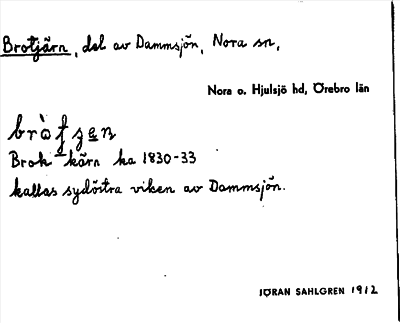 Brotjärn, del av Dammsjön, Nora sn,
Nora o. Hjulsjö hd, Örebro län
Brok kärn ka 1830-33
kallas sydöstra viken av Dammsjön.
JÖRAN SAHLGREN 1912